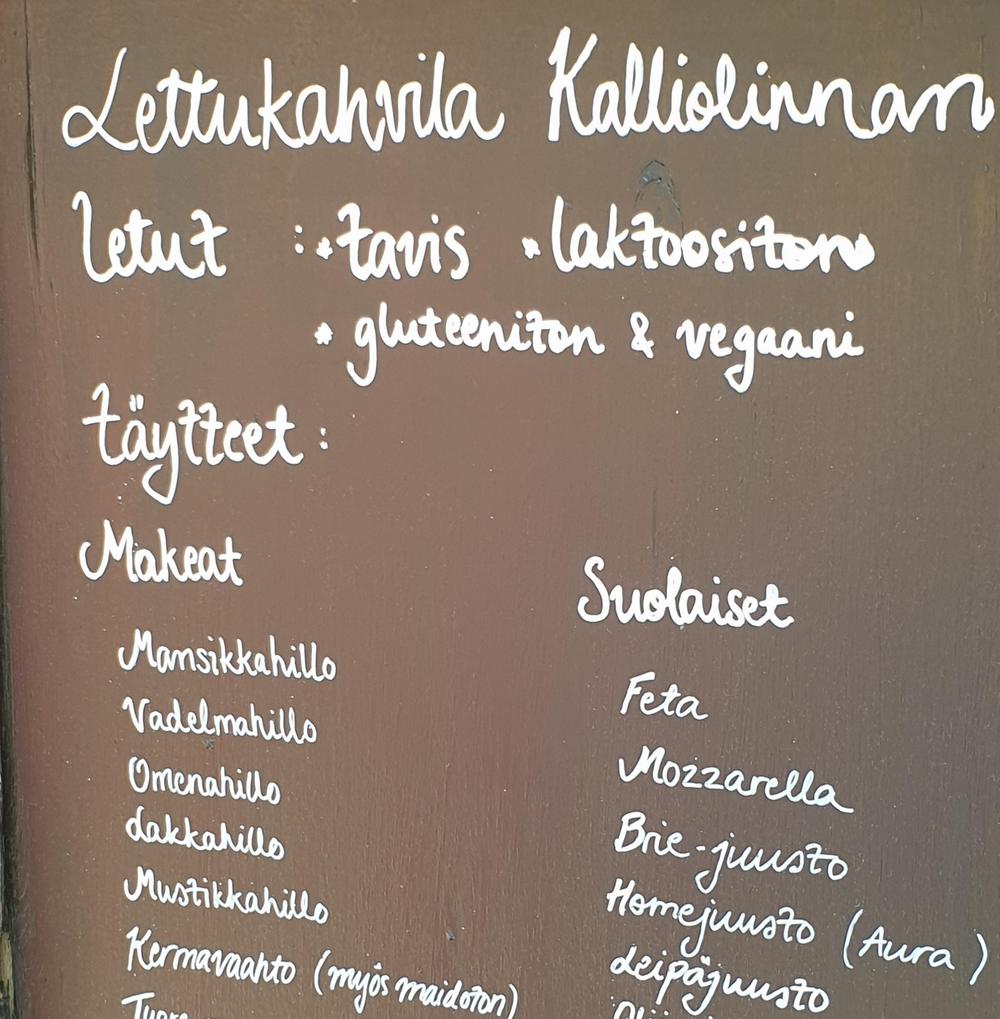 Lettukahvila Kalliolinnan
letut : * tavis * laktoositon
* gluteeniton & vegaani
täytteet :
Makeat
Mansikkahillo
Vadelmahillo
Omenahillo
Lakkahillo
Mustikkahillo
Kermavaahto (myös maidoton)
Suolaiset
Feta
Mozzarella
Brie-juusto
Homejuusto (Aura)
Leipäjuusto